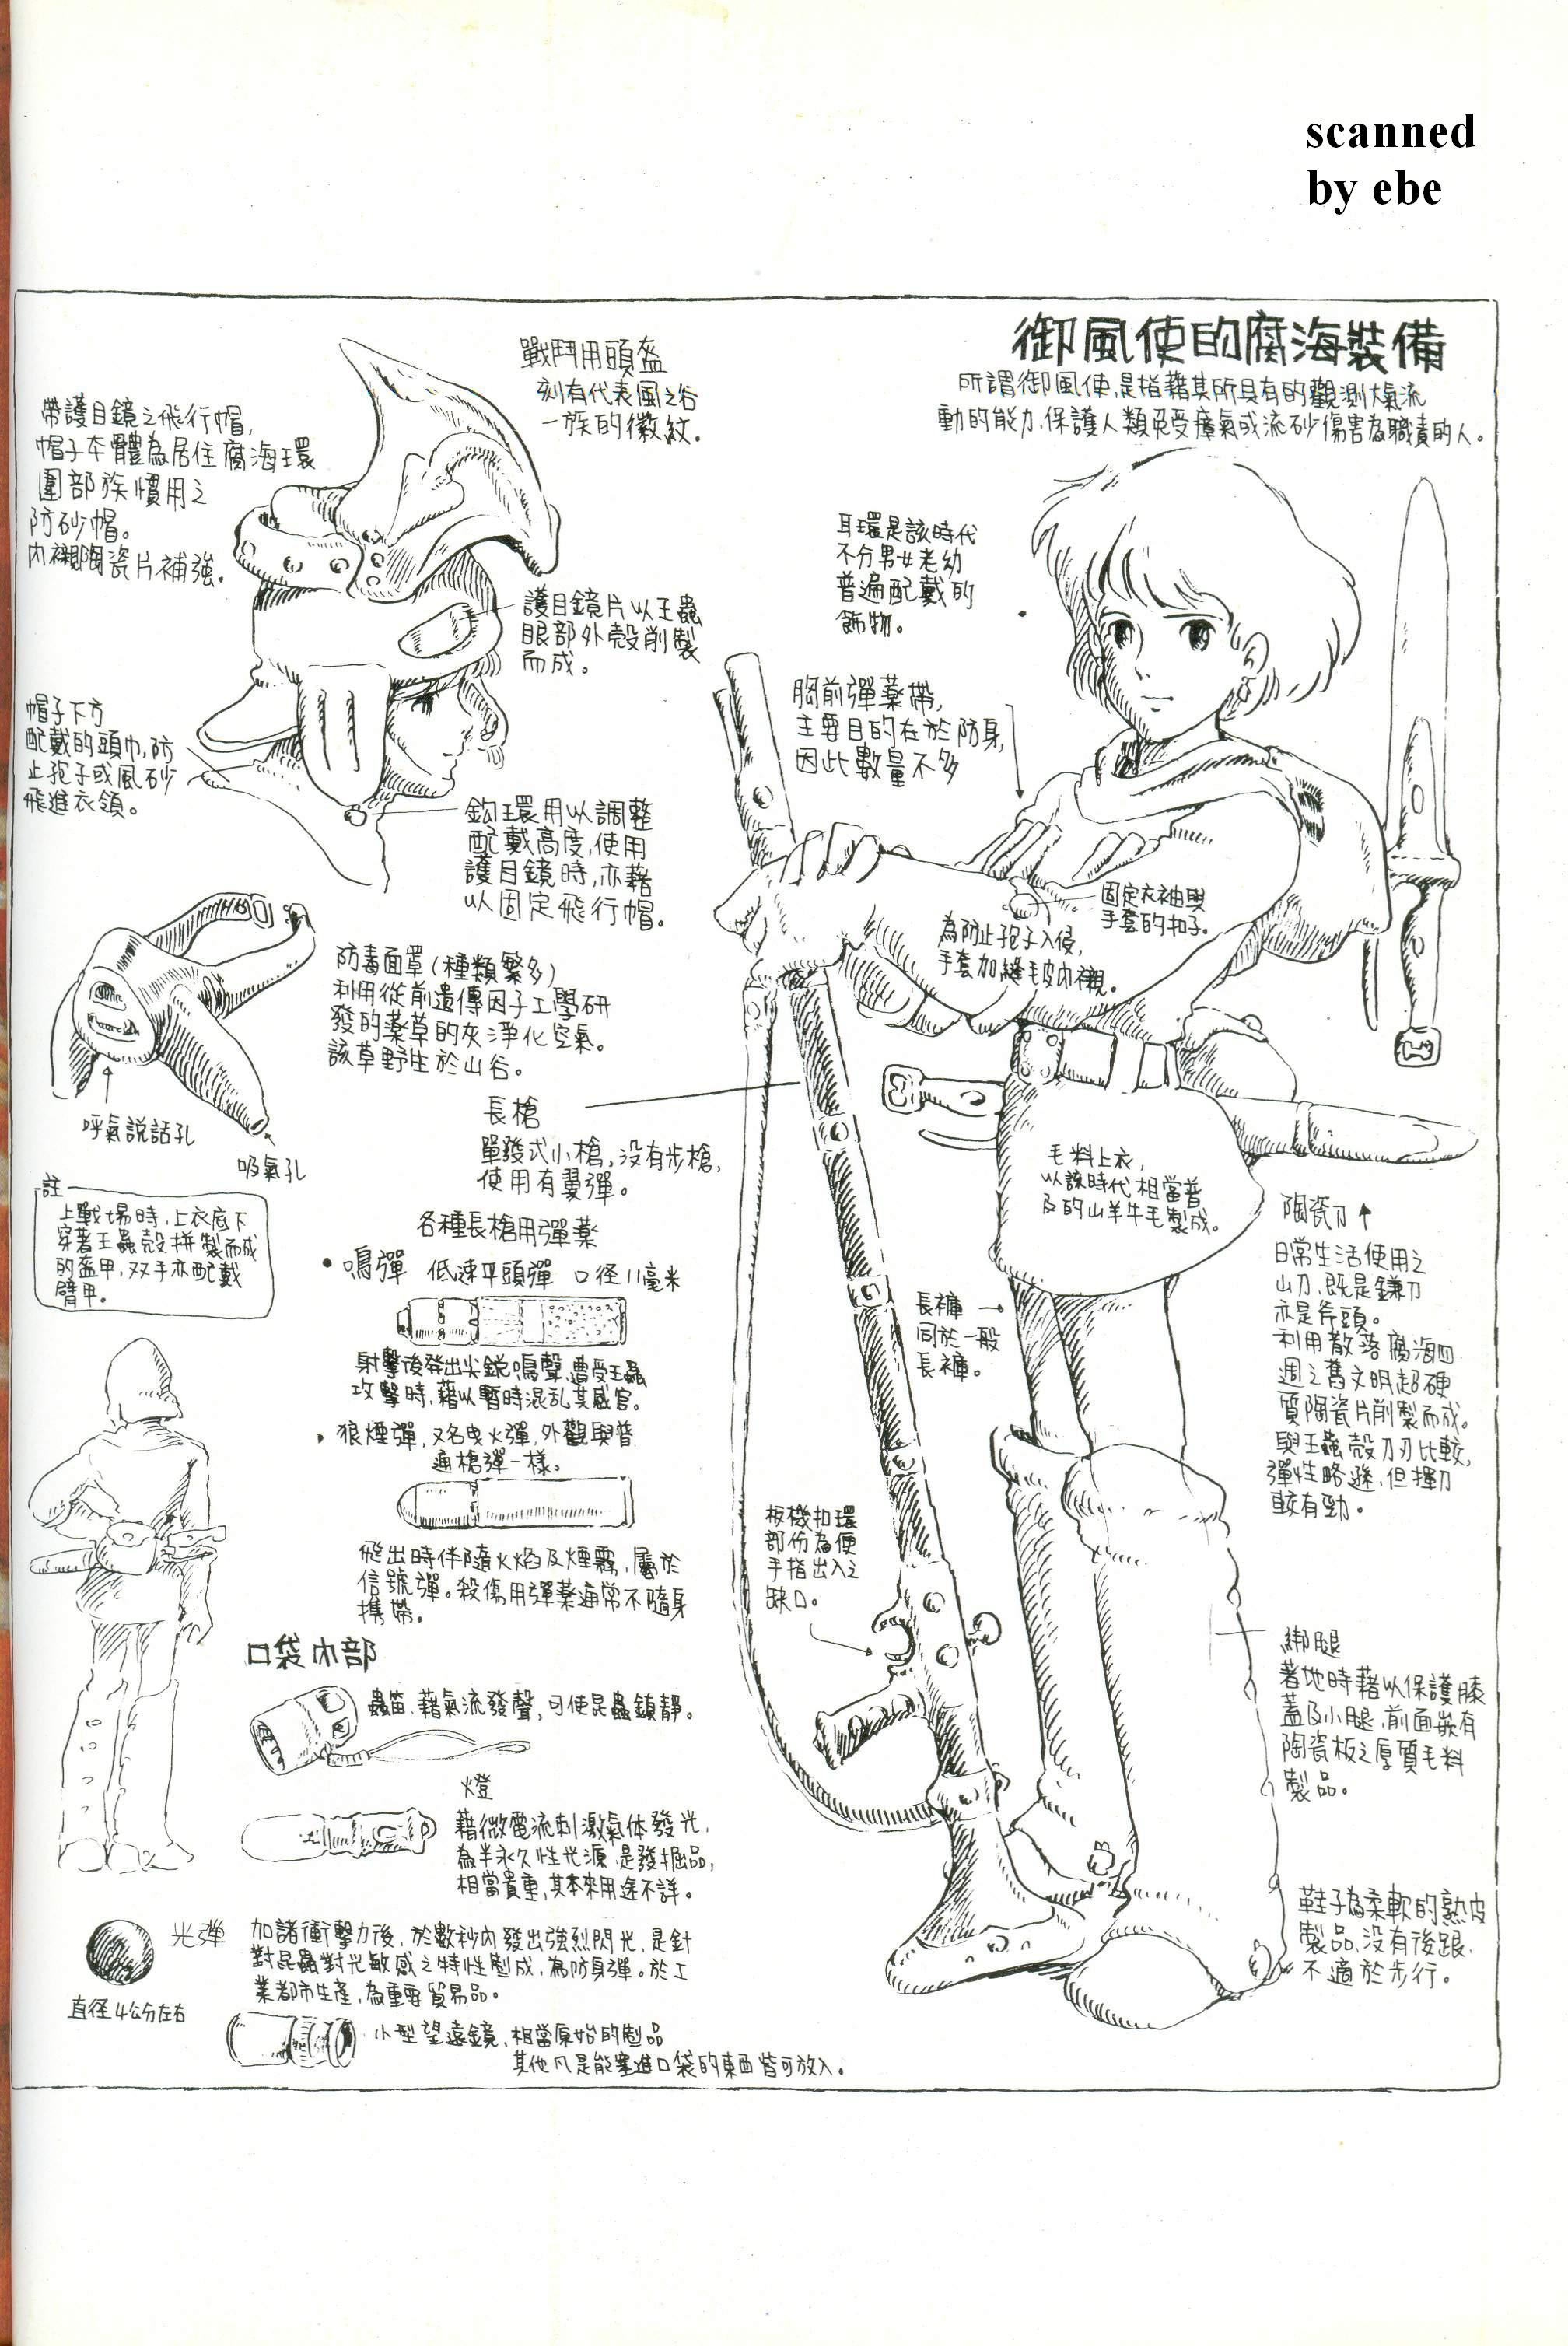 scanned
by ebe
御風使的腐海裝備
所謂御風使,是指藉其所具有的觀測大氣流
動的能力,保護人類免受瘴氣或流砂傷害為職責的人。
戰鬥用頭盔
刻有代表風之谷
一族的徽紋.
帶護目鏡之飛行帽,
帽子本體為居住腐海環
圍部族慣用之
防砂帽。
內襯陶瓷片補強.
護目鏡片以王蟲
眼部外殼削製
而成。
帽子下方
配戴的頭巾,防
止孢子或風砂
飛進衣領。
鈎環用以調整
配戴高度,使用
護目鏡時,亦藉
以固定飛行帽。
耳環是該時代
不分男女老幼
普遍配戴的
飾物。
胸前彈藥帶,
主要目的在於防身,
因此數量不多
固定衣袖與
手套的扣子。
為防止孢子入侵,
手套加縫毛皮內襯.
防毒面罩(種類繁多)
利用從前遺傳因子工學研
發的藥草的灰淨化空氣。
該草野生於山谷。
呼氣說話孔
吸氣孔
長槍
單發式小槍,没有步槍,
使用有翼彈。
各種長槍用彈藥
•鳴彈 低速平頭彈 口径11毫米
射擊後発出尖銳鳴聲,遭受王蟲
攻擊時,藉以暫時混乱其感官。
•狼煙彈,又名曳火彈,外觀與普
通槍彈一樣。
飛出時伴隨火焰及煙霧,屬於
信號彈。殺傷用彈藥通常不隨身
携帶。
註
上戰場時,上衣底下
穿著王蟲殼拼製而成
的盔甲,双手亦配戴
臂甲。
毛料上衣,
以該時代相當普
及的山羊牛毛製成。
長褲→
同於一般
長褲。
陶瓷刀↑
日常生活使用之
山刀,既是鐮刀
亦是斧頭。
利用散落腐海四
週之舊文明超硬
質陶瓷片削製而成。
與王蟲殼刀刃比較,
彈性略遜,但揮刀
較有勁。
板機扣環
部份為便
手指出入之
缺口。
綁腿
著地時藉以保護膝
蓋及小腿,前面嵌有
陶瓷板之厚質毛料
製品。
鞋子為柔軟的熟皮
製品,没有後跟,
不適於步行。
口袋內部
蟲笛.藉氣流發聲,可使昆蟲鎮靜。
燈
藉微電流刺激氣体發光,
為半永久性光源.是發掘品,
相當貴重,其本來用途不詳。
光弾
加諸衝擊力後,於數秒內發出強烈閃光,是針
對昆蟲對光敏感之特性製成,為防身彈。於工
業都市生產,為重要貿易品。
直径4公分左右
小型望遠鏡,相當原始的製品
其他凡是能塞進口袋的東西皆可放入.